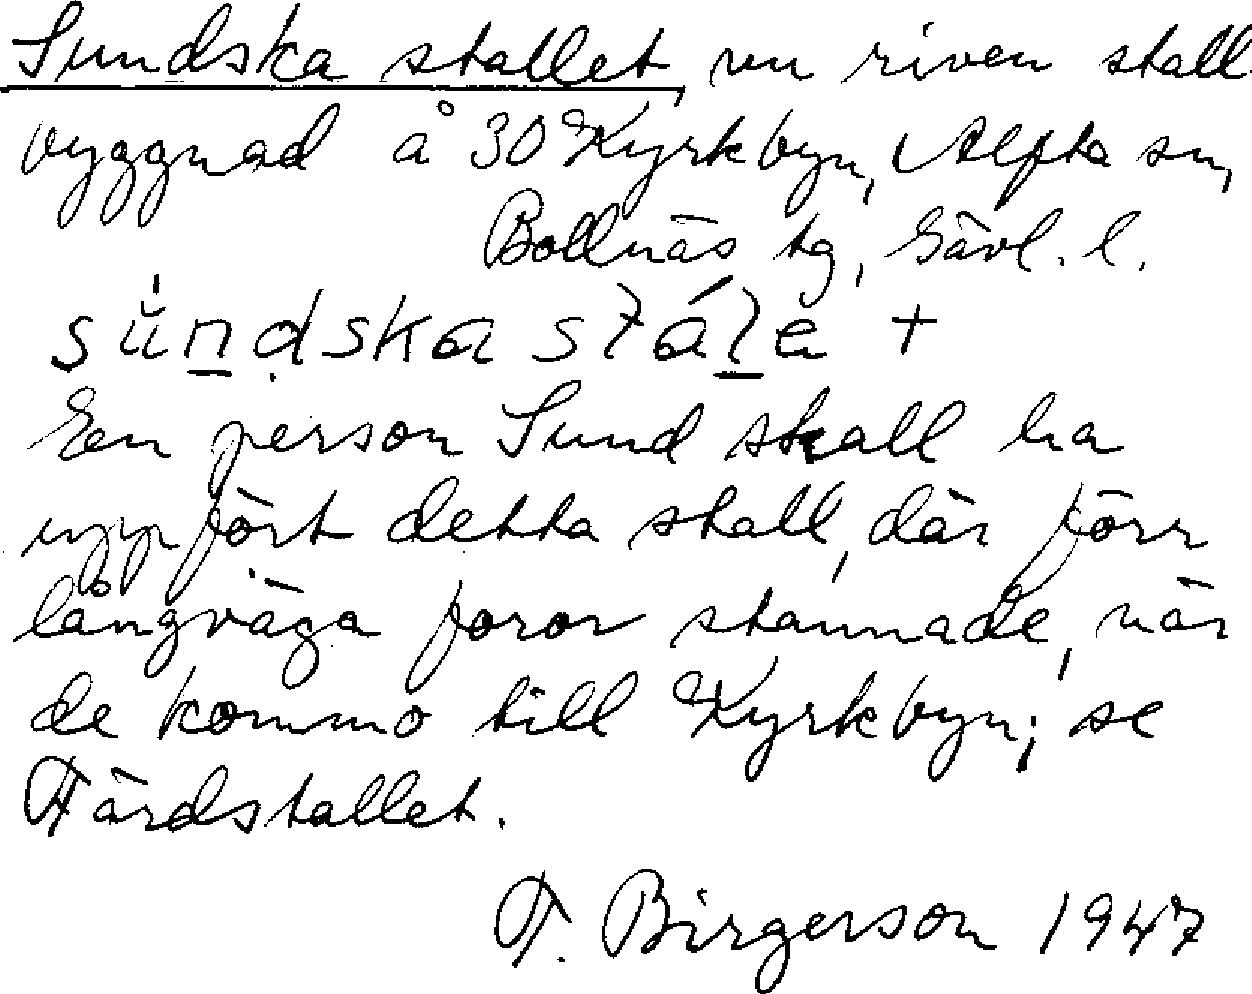 Sundska stallet, nu riven stall-
byggnad å 30 Kyrkbyn, Alfta sn,
Bollnäs tg, Gävl. l.
En person Sund skall ha
uppfört detta stall, där förr
långväga foror stannade, när
de kommo till Kyrkbyn; se
Färdstallet.
F. Birgerson 1947